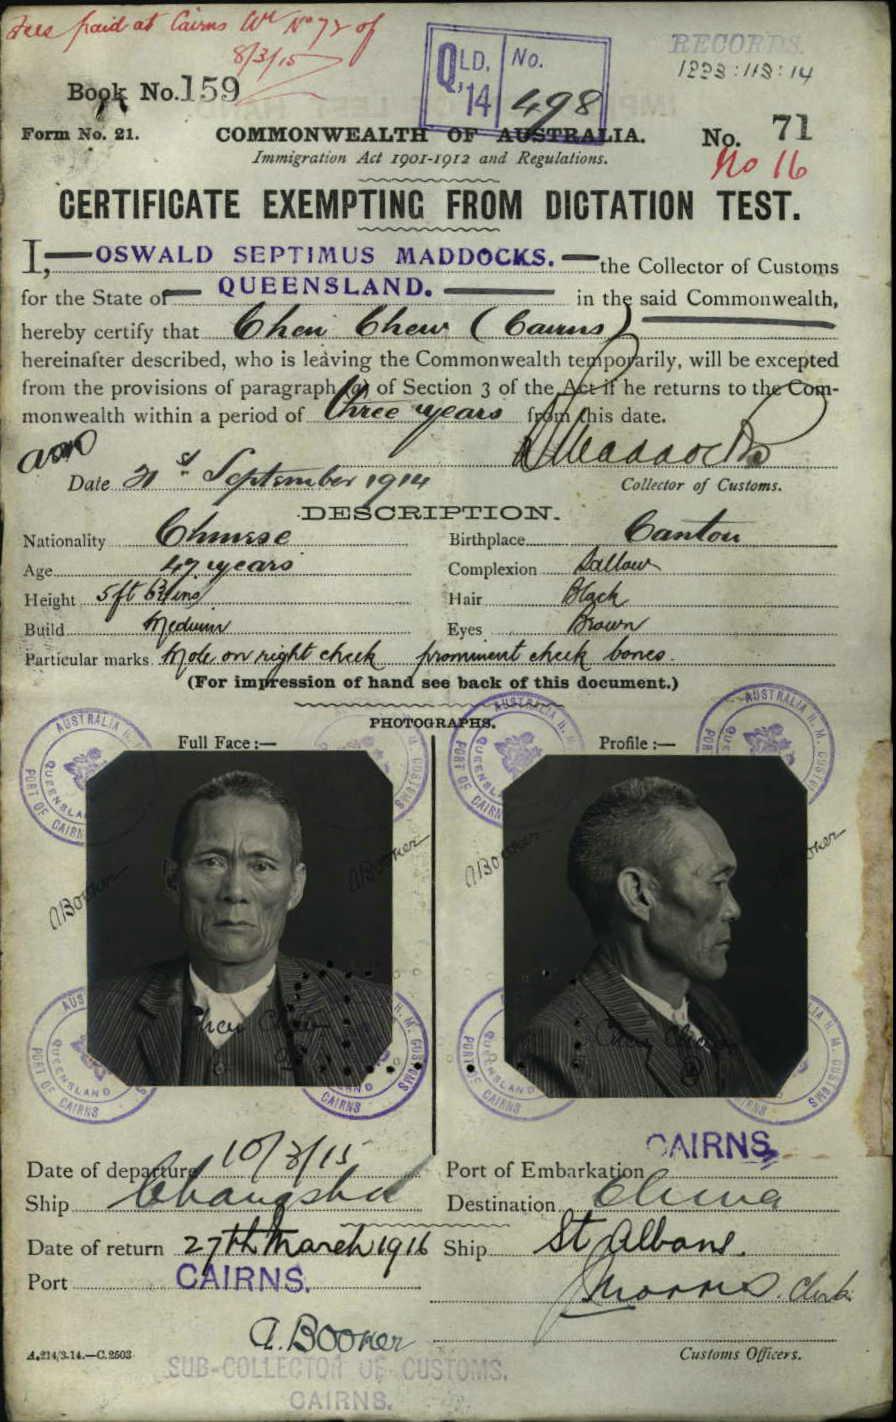 Fees paid at Cairns No 72 of
8/3/15
QLD. No.
'14 498
RECORDS.
Book No. 159
Form No. 21.
COMMONWEALTH OF AUSTRALIA.
No. 71
No 16
Immigration Act 1901-1912 and Regulations.
CERTIFICATE EXEMPTING FROM DICTATION TEST.
I, OSWALD SEPTIMUS MADDOCKS. the Collector of Customs
for the State of QUEENSLAND. in the said Commonwealth,
hereby certify that Chen Chew (Cairns)
hereinafter described, who is leaving the Commonwealth temporarily, will be excepted
from the provisions of paragraph (a) of Section 3 of the Act if he returns to the Com-
monwealth within a period of three years from this date.
Maddocks
Date 21st September 1914
Collector of Customs.
DESCRIPTION.
Nationality Chinese Birthplace Canton
Age 47 years Complexion Sallow
Height 5ft 6¾ins Hair Black
Build Medium Eyes Brown
Particular marks. Mole on right cheek prominent cheek bones.
(For impression of hand see back of this document.)
PHOTOGRAPHS.
Full Face :— Profile :—
AUSTRALIA H. M. CUSTOMS
QUEENSLAND
PORT OF CAIRNS
A Booker
A Booker
A Booker
Chew Chew
Date of departure 10/3/15 Port of Embarkation CAIRNS
Ship Changsha Destination China
Date of return 27th March 1916 Ship St Albans.
Port CAIRNS.
J Morris. Clerk
A. Booker
A.214/3.14.—C.2503
Customs Officers.
SUB-COLLECTOR OF CUSTOMS.
CAIRNS.